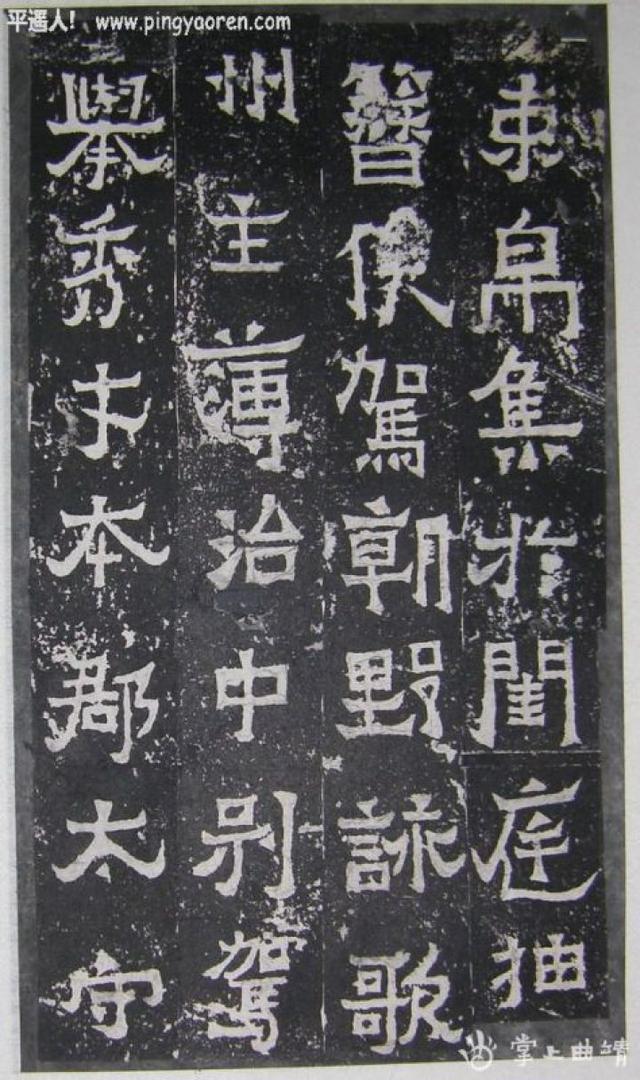 平遥人! www.pingyaoren.com
束帛集於閨庭抽
簪俟駕朝野詠歌
州主薄治中別駕
舉秀才本郡太守
掌上曲靖